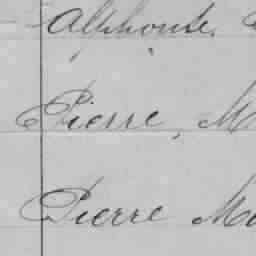 Alphonse,
Pierre, M
Pierre Ma